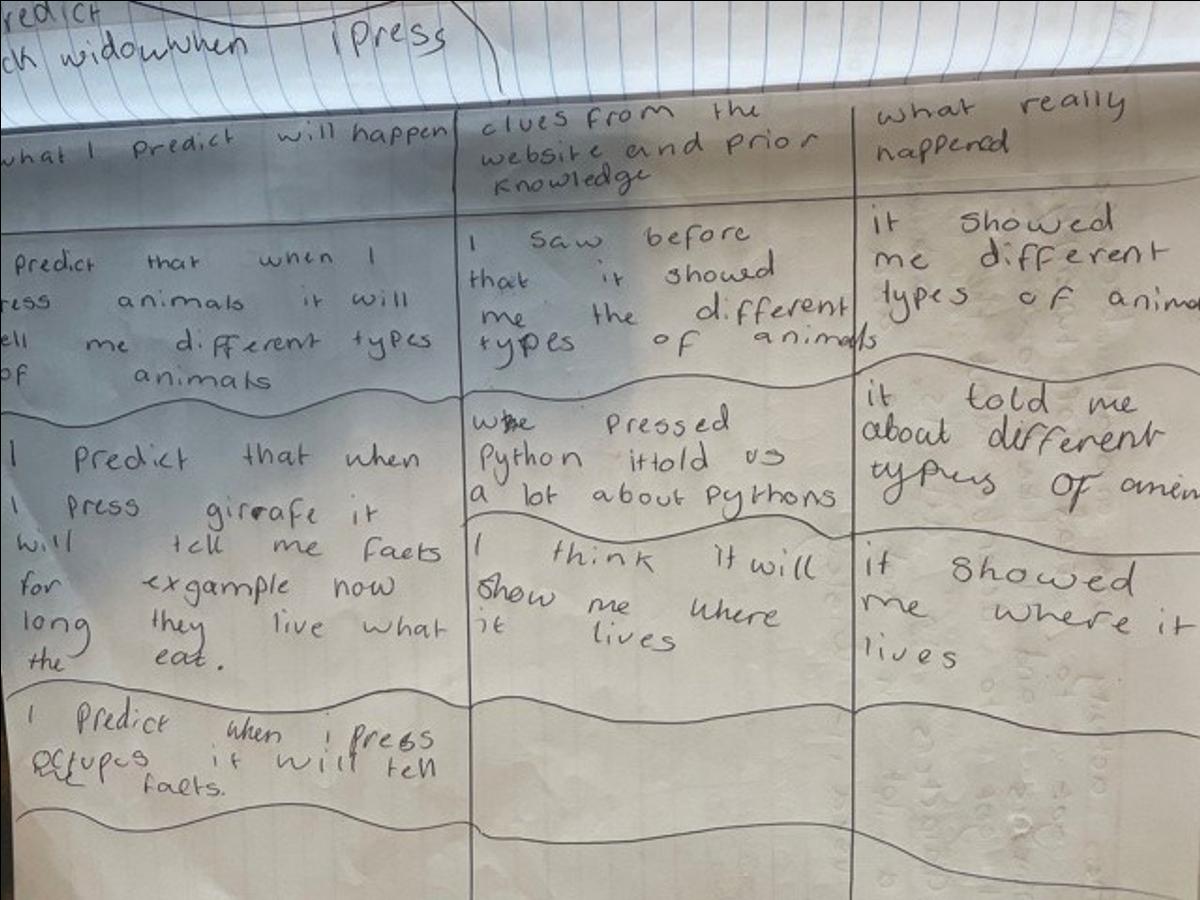 redict
ck widowwhen i press
what I predict will happen
predict that when I
ress animals it will
ell me different types
of animals
I predict that when
I press girrafe it
will tell me facts
for exgample how
long they live what
the eat.
I predict when i press
octupus it will tell
me facts.
clues from the
website and prior
knowledge
I saw before
that it showed
me the different
types of animals
we pressed
python ittold us
a lot about pythons
I think it will
show me where
it lives
what really
happened
it showed
me different
types of anima
it told me
about different
types of anim
it showed
me where it
lives